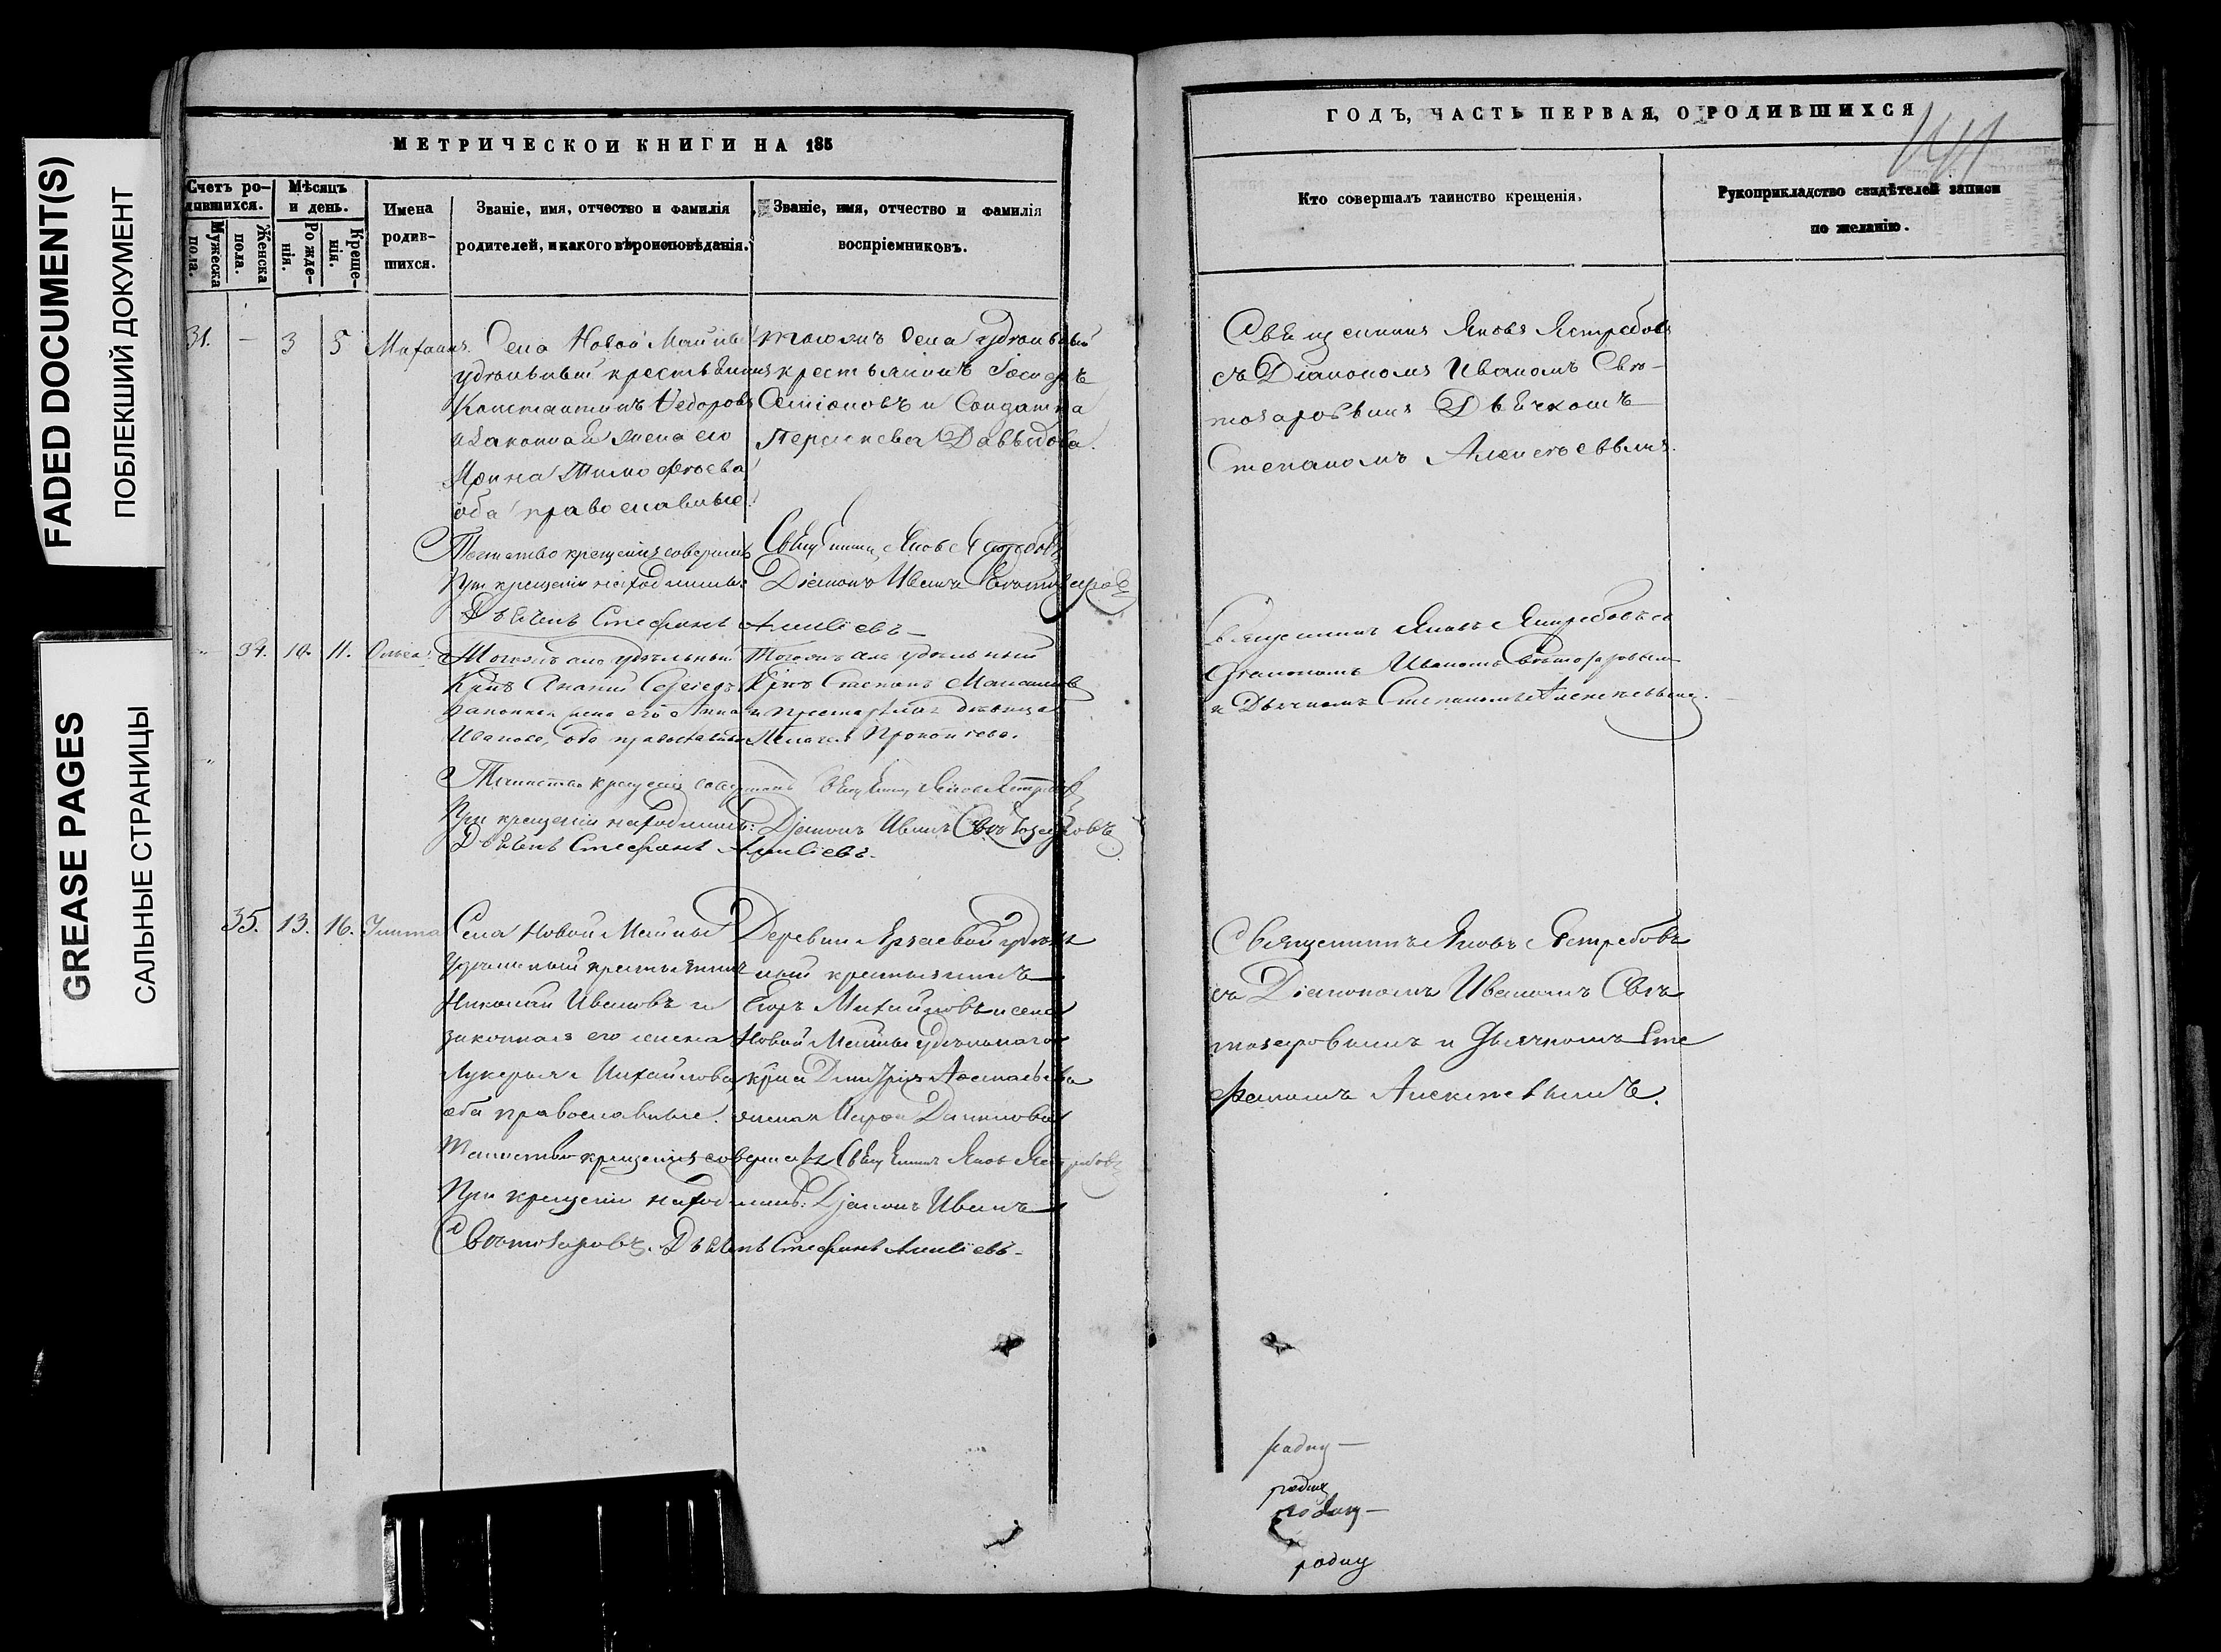 FADED DOCUMENT(S)
ПОБЛЕКШИЙ ДОКУМЕНТ
GREASE PAGES
САЛЬНЫЕ СТРАНИЦЫ
МЕТРИЧЕСКОЙ КНИГИ НА 185
Счетъ ро-
дившихся.
Мужеска
пола.
Женска
пола.
Мѣсяцъ
и день.
Рожде-
нія.
Креще-
нія.
Имена
родив-
шихся.
Званіе, имя, отчество и фамилія
родителей, и какого вѣроисповѣданія.
Званіе, имя, отчество и фамилія
воспріемниковъ.
31. — 3 5
Села Новой Майны
удѣльный крестьянинъ
Константинъ Ѳедоровъ
и законная жена его
Ирина Тимофѣева
оба православные
тогожъ села удѣльный
крестьянинъ
и Солдатка
Давыдова.
Таинство крещенія совершалъ Священникъ Яковъ Ястребовъ
При крещеніи находились: Діаконъ Иванъ Свѣтозаровъ
Дьячекъ Стефанъ Алексѣевъ
34. 10. 11. Ольга.
Тогожъ села удѣльный
Кр-нъ Ананій
законная жена его Анна
Иванова, оба православные
Тогожъ села удѣльный
Кр-нъ Степанъ
дѣвица
Пелагея Прокопьева.
Таинство крещенія совершалъ Священникъ Яковъ Ястребовъ
При крещеніи находились: Діаконъ Иванъ Свѣтозаровъ
Дьячекъ Стефанъ Алексѣевъ.
35. 13. 16. Улита
Села Новой Майны
удѣльный крестьянинъ
Николай Ивановъ и
законная его жена
Лукерья Михайлова
оба православные.
Деревни удѣль
ный крестьянинъ
Егоръ Михайловъ и села
Новой Майны удѣльнаго
кр-на Димитрія
жена Данилова
Таинство крещенія совершалъ Священникъ Яковъ Ястребовъ
При крещеніи находились: Діаконъ Иванъ
Свѣтозаровъ. Дьячекъ Стефанъ Алексѣевъ.
ГОДЪ, ЧАСТЬ ПЕРВАЯ, О РОДИВШИХСЯ
Кто совершалъ таинство крещенія.
Рукоприкладство свидѣтелей записи
по желанію.
Священникъ Яковъ Ястребовъ
съ Діакономъ Иваномъ Свѣ-
тозаровымъ Дьячкомъ
Степаномъ Алексѣевымъ.
Священникъ Яковъ Ястребовъ съ
Діакономъ Иваномъ Свѣтозаровымъ
и Дьячкомъ Степаномъ Алексѣевымъ.
Священникъ Яковъ Ястребовъ
съ Діакономъ Иваномъ Свѣ
тозаровымъ и Дьячкомъ Сте
фаномъ Алексѣевымъ.